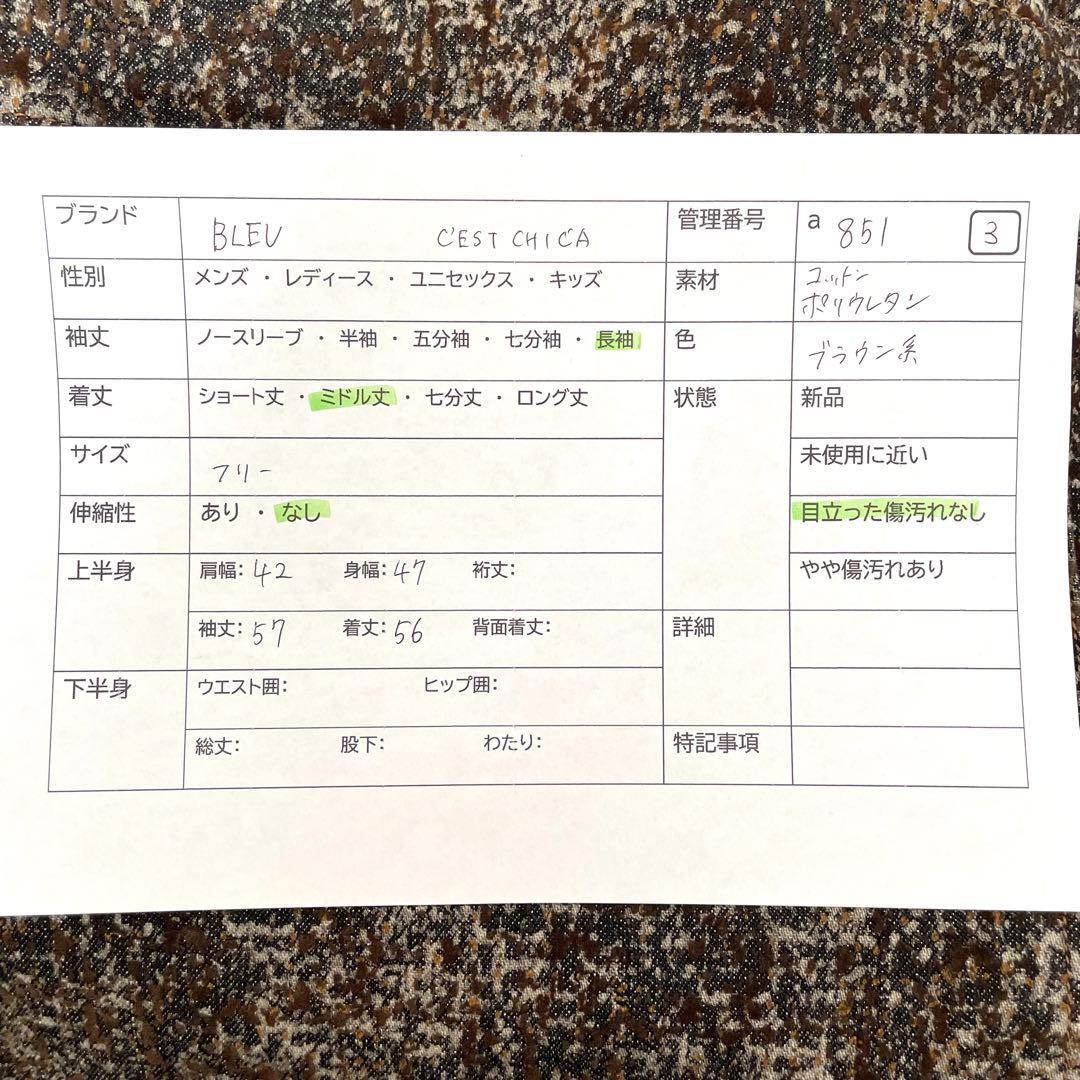 ブランド BLEU C'EST CHIC'A 管理番号 a 851 3
性別 メンズ ・ レディース ・ ユニセックス ・ キッズ 素材 コットン
ポリウレタン
袖丈 ノースリーブ ・ 半袖 ・ 五分袖 ・ 七分袖 ・ 長袖 色 ブラウン系
着丈 ショート丈 ・ ミドル丈 ・ 七分丈 ・ ロング丈 状態 新品
サイズ フリー 未使用に近い
伸縮性 あり ・ なし 目立った傷汚れなし
上半身 肩幅: 42 身幅: 47 裄丈: やや傷汚れあり
袖丈: 57 着丈: 56 背面着丈: 詳細
下半身 ウエスト囲: ヒップ囲:
総丈: 股下: わたり: 特記事項